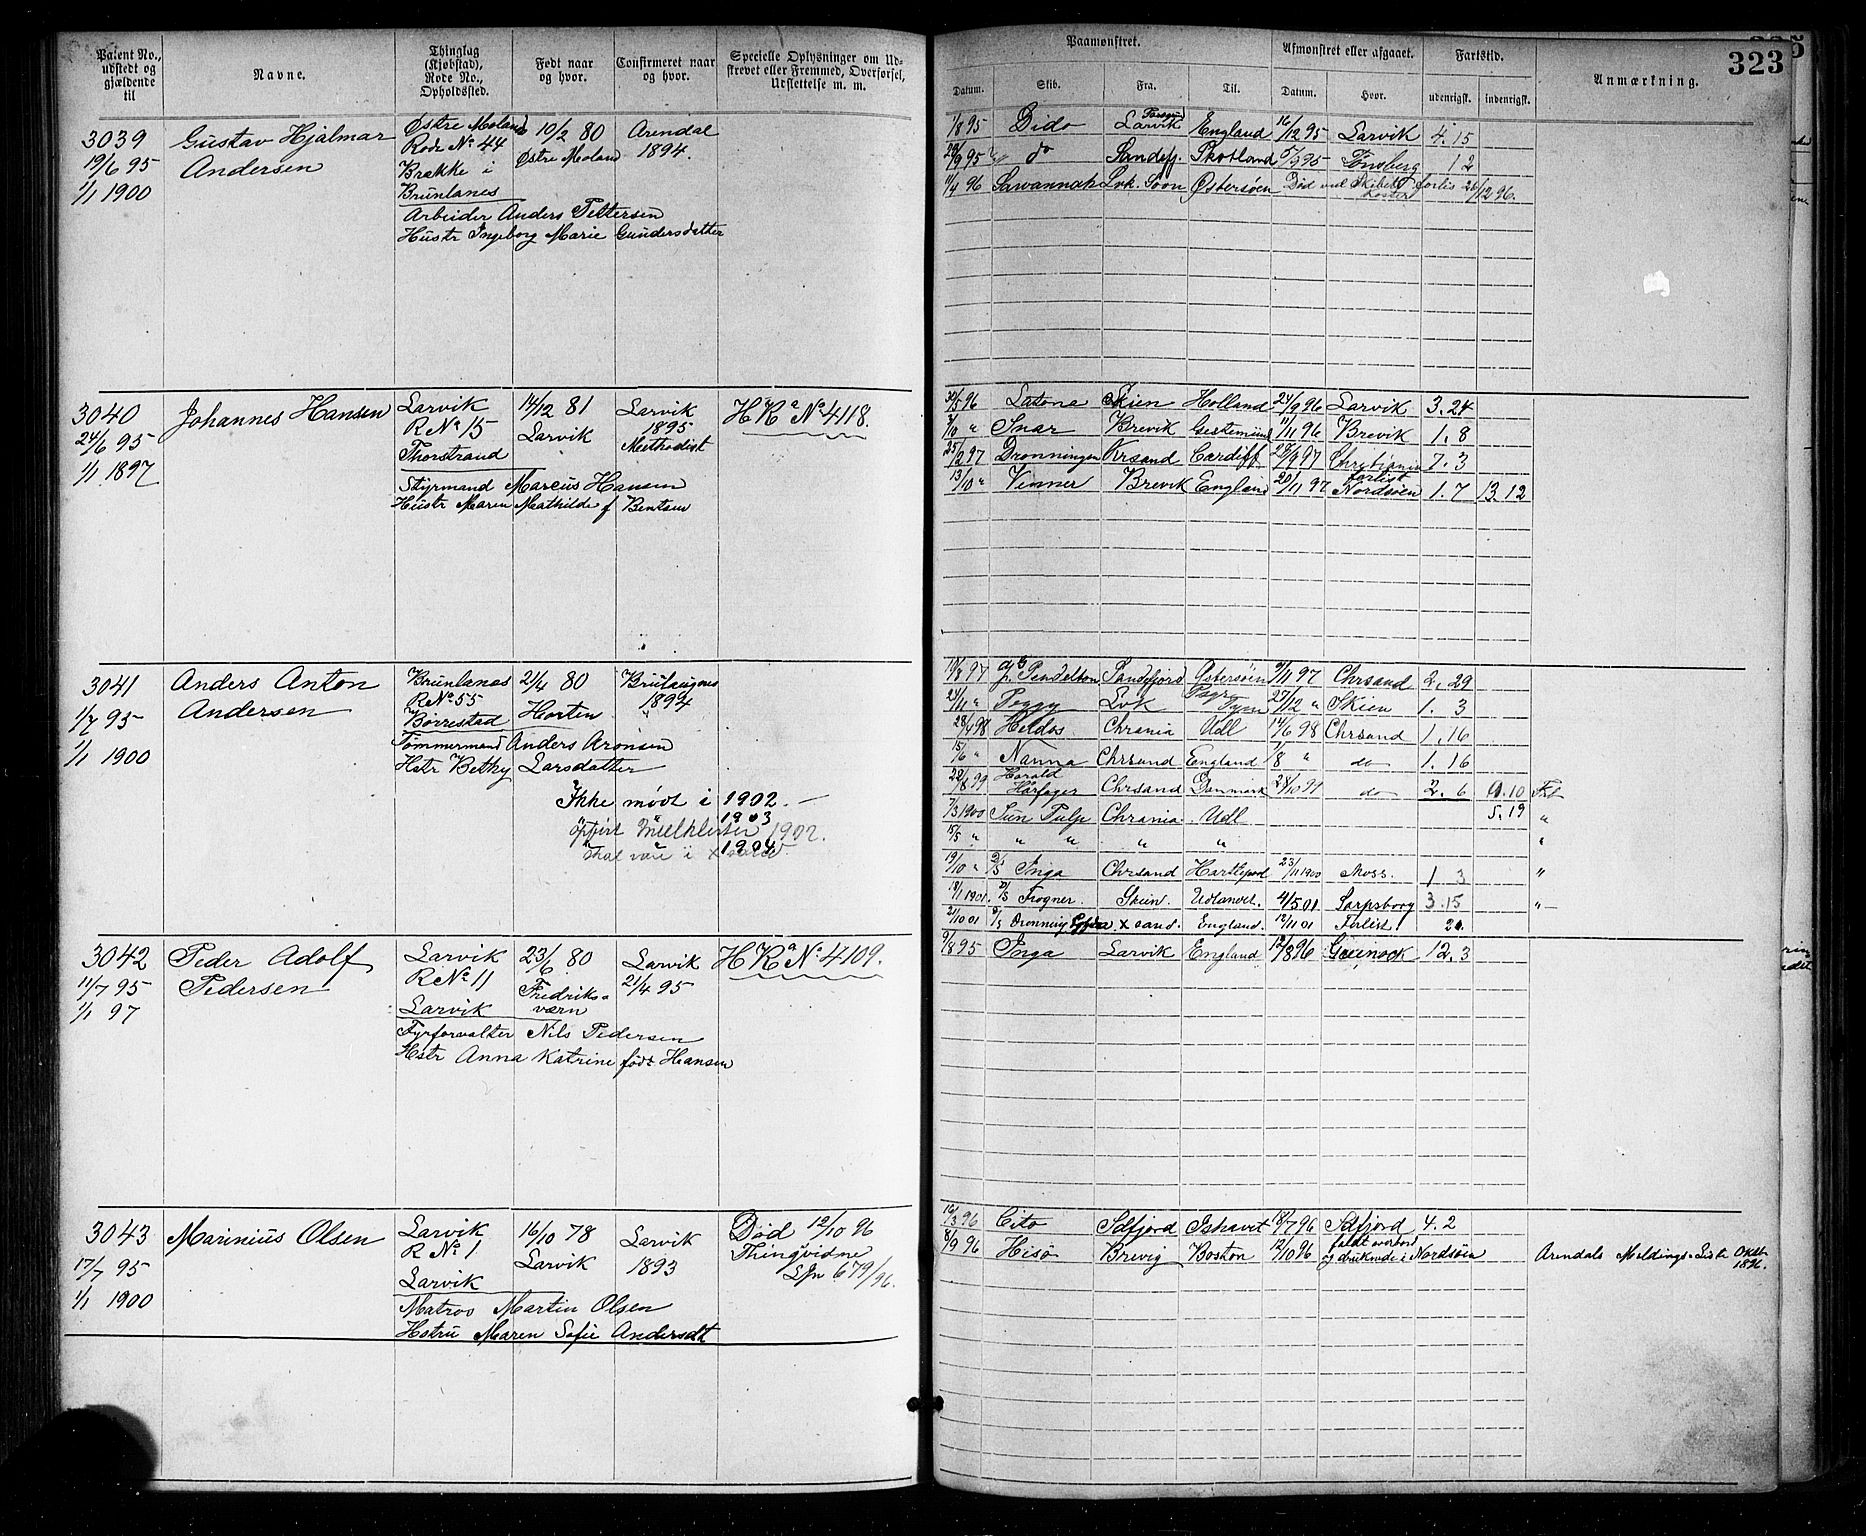 323
Patent No., udstedt og gjældende til
Navne.
Thinglag (Kjøbstad), Rode No., Opholdssted.
Født naar og hvor.
Confirmeret naar og hvor.
Specielle Oplysninger om Udskrevet eller Fremmed, Overførsel, Udslettelse m. m.
Paamønstret.
Afmønstret eller afgaaet.
Fartstid.
Anmærkning.
Datum. Skib. Fra. Til. Datum. Hvor. udenrigsk. indenrigsk.
3039 Gustav Hjalmar Østre Moland 10/2 80 Arendal
19/6 95 Andersen Rode No 44 Østre Moland 1894.
1/1 1900 Brække i
Brunlanes
Arbeider Anders Pettersen
Hustr Ingeborg Marie Gundersdatter
1/8 95 Dido Larvik England 16/12 95 Larvik 4.15
do Skotland Tønsberg 12
11/4 96 Savannah Lvk. Soon Østersøen Død ved Skibets forlis 26/12 96.
3040 Johannes Hansen Larvik 14/12 81 Larvik H R No 4118.
24/6 95 R No 15 Larvik 1895
1/1 1897 Thorstrand Methodist
Styrmand Marcus Hansen
Hustr Maren Mathilde f Bentsen
30/5 96 Latona Skien Holland 24/9 96 Larvik 3.24
3/10 " Snar Brevik Gestemünde 11/11 96 Brevik 1.8
25/2 97 Dronningen Krsand Cardiff 28/9 97 Christiania 7.3
13/10 " Vimner Brevik England 20/11 97 forlist Nordsøen 1.7 13.12
3041 Anders Anton Brunlanes 21/4 80 Brunlanes
1/7 95 Andersen R No 55 Horten 1894
1/1 1900 Børrestad
Tømmermand Anders Aronsen
Hstr Betky Larsdatter
Ikke mødt i 1902. —
" " 1903
1902.
skal være i 1904
Pendelton Sandefjord Østersøen 9/11 97 Chrsand 2.29
24/11 " Peggy Lvk Tyne 27/12 " Skien 1.3
28/4 98 Heldos Chrania Udl 14/6 98 Chrsand 1.16
15/6 " Nanna Chrsand England 7/8 " do 1.16
22/8 99 Harald Hårfager Chrsand Danmark 28/10 99 do 2.6
7/3 1900 Chrania Udl 5.19 "
15/5 " " " " " "
19/10 " D/S Inga Chrsand Hartlepool 23/11 1900 Moss. 1 3 "
18/1 1901. D/S Frogner. Skien. Udlandet. 4/5 01 Sarpsborg 3.15 "
2/10 01 D/S Dronning x sand. England. 12/11 01 Forlist
3042 Peder Adolf Larvik 23/6 80 Larvik H R No 4109.
11/7 95 Pedersen R No 11 Fredriksværn 21/4 95
1/1 97 Larvik
Fyrforvalter Nils Pedersen
Hstr Anna Katrine født Hansen
9/8 95 Inga Larvik England 12/8 96 Greenock 12.3
3043 Marinius Olsen Larvik 16/10 78 Larvik Død 12/10 96
17/7 95 R No 1 Larvik 1893 Thingvidne
1/1 1900 Larvik 679/96.
Matros Martin Olsen
Hstru Maren Sofie Andersdt
16/3 96 Cito Sdfjord Ishavet 18/7 96 Sdfjord 4.2
8/9 96 Hisø Brevig Boston 12/10 96 faldt overbord og druknede i Nordsøen Arendals Meldings-Liste Oktbr 1896.